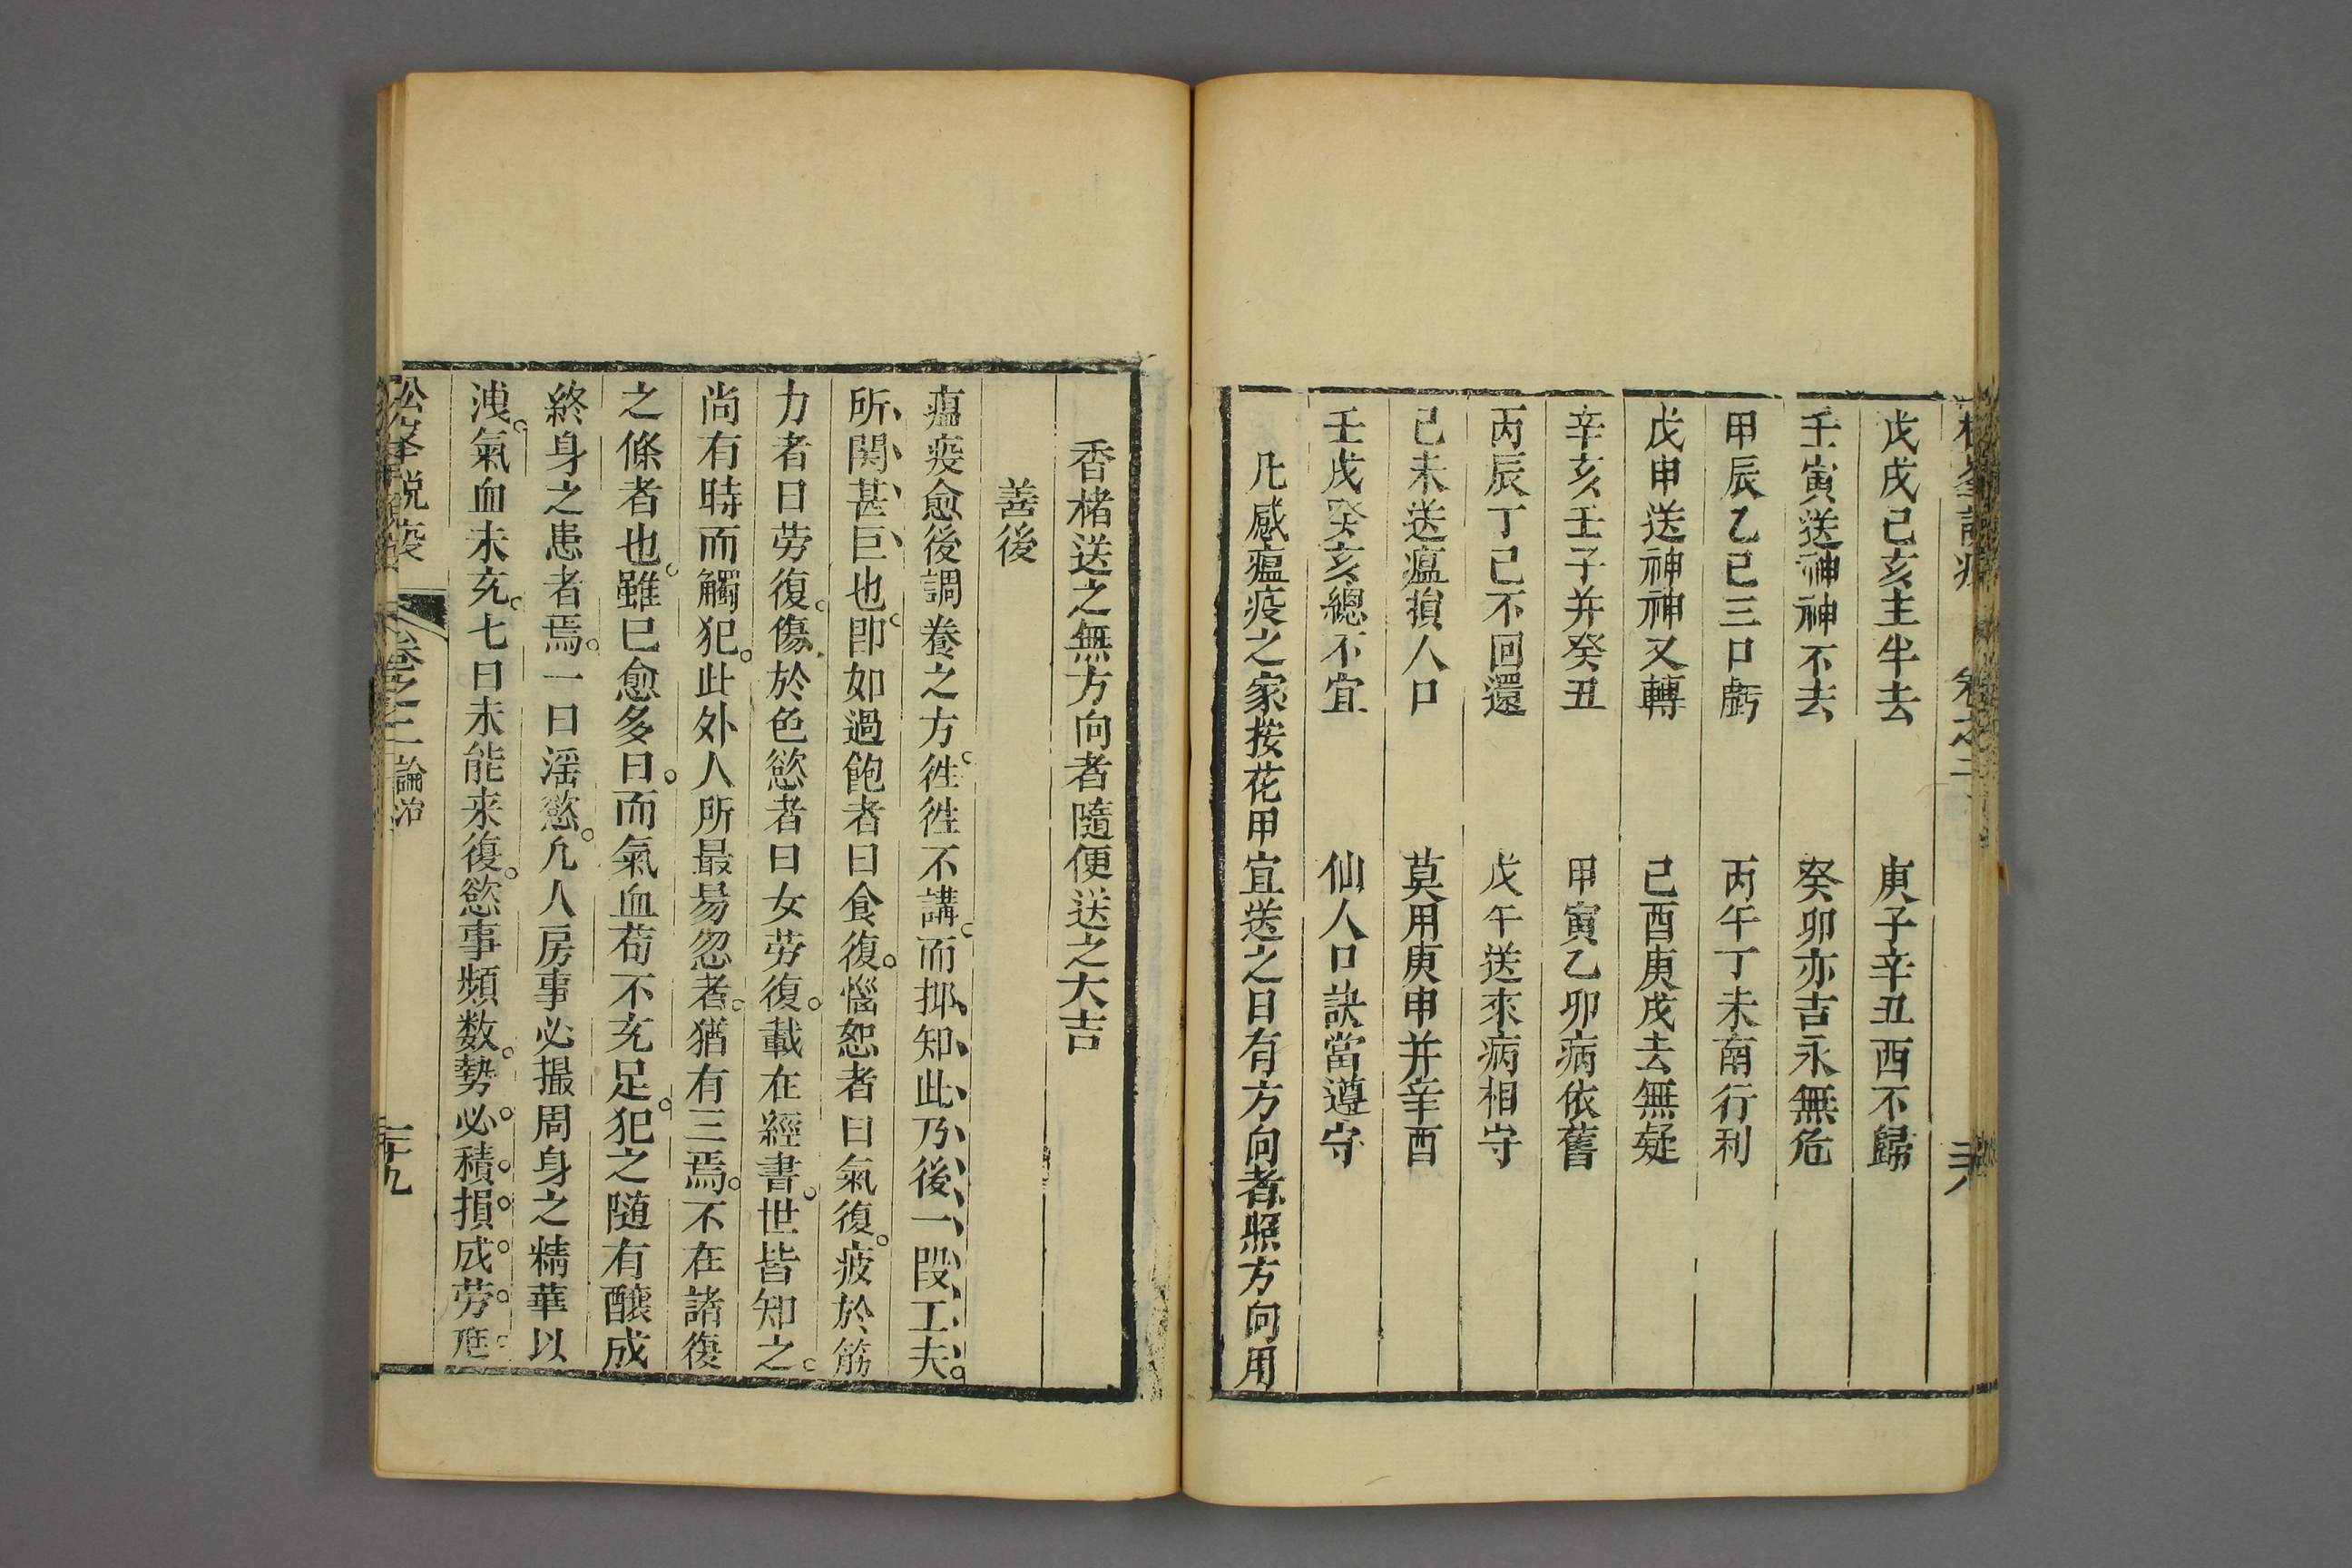 戊戌己亥主牛去　庚子辛丑西不歸
壬寅送神神不去　癸卯亦吉永無危
甲辰乙巳三口虧　丙午丁未南行利
戊申送神神又轉　己酉庚戌去無疑
辛亥壬子并癸丑　甲寅乙卯病依舊
丙辰丁巳不回還　戊午送來病相守
己未送瘟損人口　莫用庚申并辛酉
壬戌癸亥總不宜　仙人口訣當遵守
凡感瘟疫之家按花甲宜送之日有方向者照方向用
香楮送之無方向者隨便送之大吉
善後
瘟疫愈後調養之方。徃徃不講。而抑知此乃後一叚工夫。
所関甚巨也。卽如過飽者曰食復。惱怒者曰氣復。疲於筋
力者曰劳復。傷於色慾者曰女劳復。載在經書。世皆知之。
尚有時而觸犯。此外人所最易忽者。猶有三焉。不在諸復
之條者也。雖已愈多日。而氣血苟不充足。犯之随有釀成
終身之患者焉。一曰淫慾。凡人房事必撮周身之精華以
洩。氣血未充。七日未能來復。慾事頻数。勢必積損成劳。尫
松峯説疫　卷之二　論治　二十九